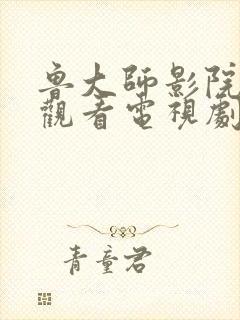 魯大師影院
觀看電視劇
青童君